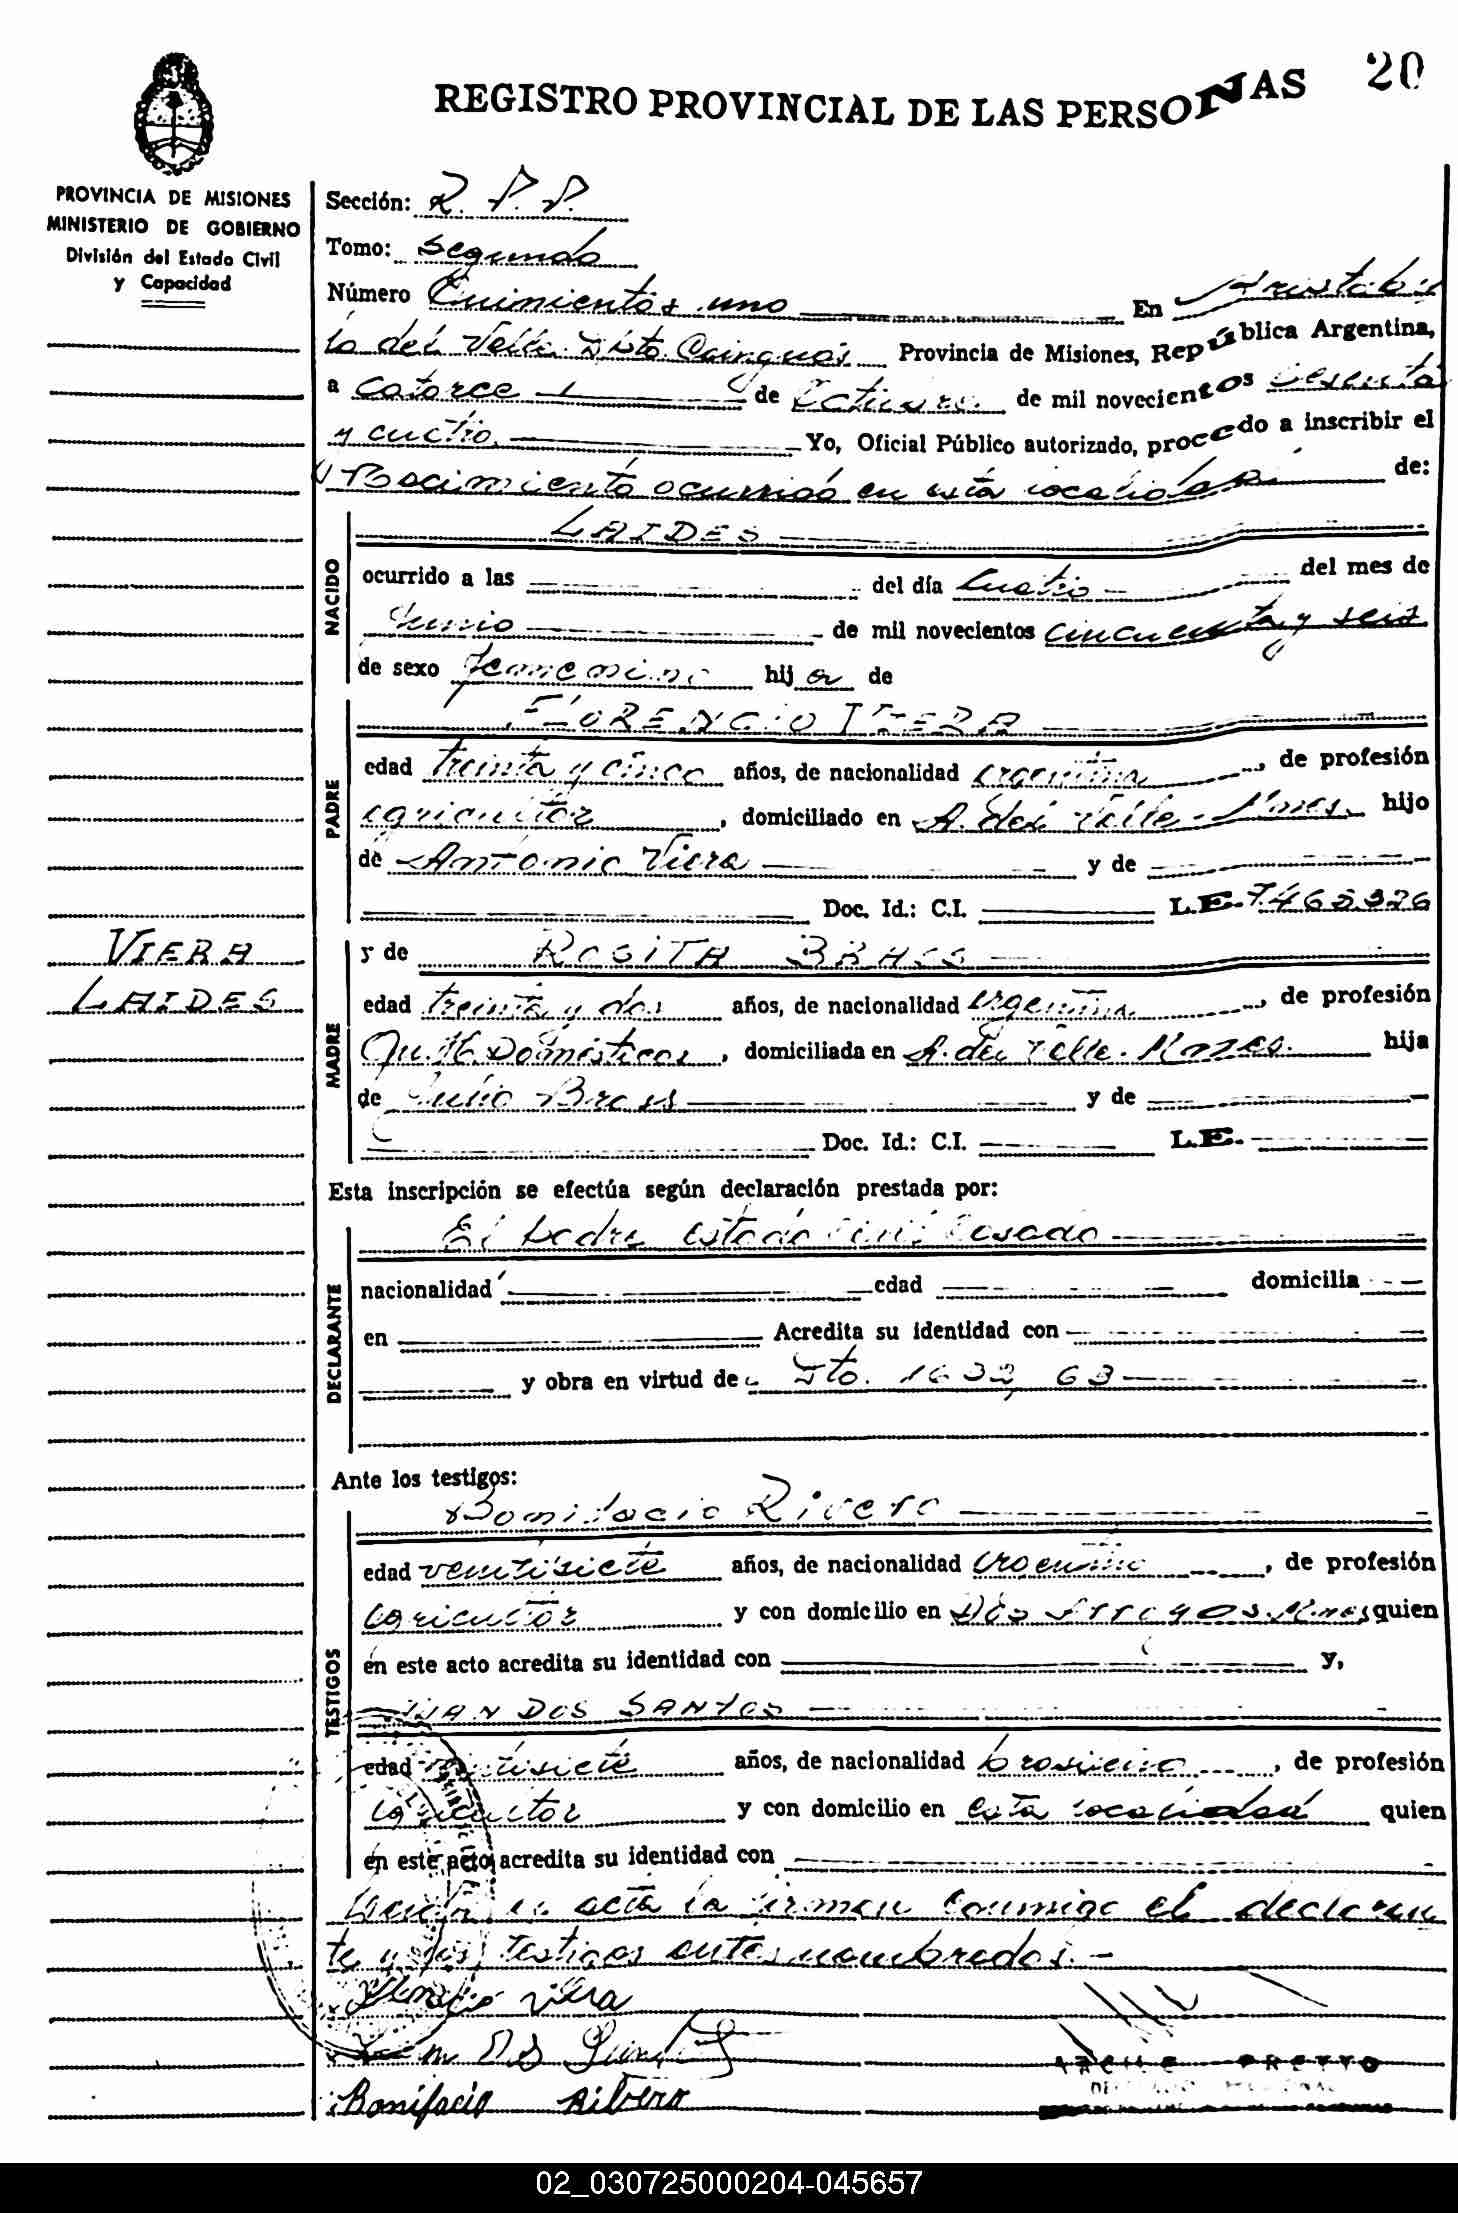 REGISTRO PROVINCIAL DE LAS PERSONAS 20
PROVINCIA DE MISIONES
MINISTERIO DE GOBIERNO
División del Estado Civil
y Capacidad
Sección: R. P. P.
Tomo: Segundo
Número Quinientos uno En Aristobu
lo del Valle Dpto. Cainguás Provincia de Misiones, República Argentina,
a catorce de Octubre de mil novecientos Sesenta
y cuatro Yo, Oficial Público autorizado, procedo a inscribir el
Nacimiento ocurrido en esta localidad de:
NACIDO
LAIDES
ocurrido a las del día Cuatro del mes de
Junio de mil novecientos cincuenta y seis
de sexo femenino hija de
PADRE
FLORENCIO VIERA
edad treinta y cinco años, de nacionalidad argentina, de profesión
agricultor, domiciliado en A. del Valle - Mnes. hijo
de Antonio Viera y de
Doc. Id.: C.I. L.E. 7.465.326
VIERA
LAIDES
MADRE
y de ROSITA BRASS
edad treinta y dos años, de nacionalidad argentina, de profesión
Qu. H. Domésticos, domiciliada en A. del Valle - Mnes. hija
de Julio Brass y de
Doc. Id.: C.I. L.E.
Esta inscripción se efectúa según declaración prestada por:
DECLARANTE
El padre estado civil Casado
nacionalidad edad domicilia
en Acredita su identidad con
y obra en virtud de Dto. 1632/63
Ante los testigos:
TESTIGOS
Bonifacio Rivero
edad veintisiete años, de nacionalidad argentina, de profesión
agricultor y con domicilio en Dos Arroyos. Mnes, quien
en este acto acredita su identidad con y,
JUAN DOS SANTOS
edad veintisiete años, de nacionalidad brasileño, de profesión
agricultor y con domicilio en esta localidad quien
en este acto acredita su identidad con
Leída el acta la firman conmigo el declaran
te y los testigos antes nombrados. -
Viera
Bonifacio Ribero
02_030725000204-045657